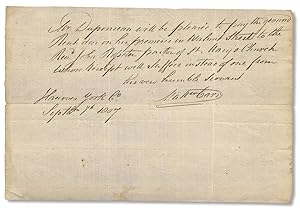 Mr Duponceau will be pleased to pay the ground
Rent due on his premises in Walnut Street to the
Revd John Pastor of St. Mary's Church
whose Receipt will suffice instead of one from
his very humble servant
Hanover York Co
Septbr 7th 1807